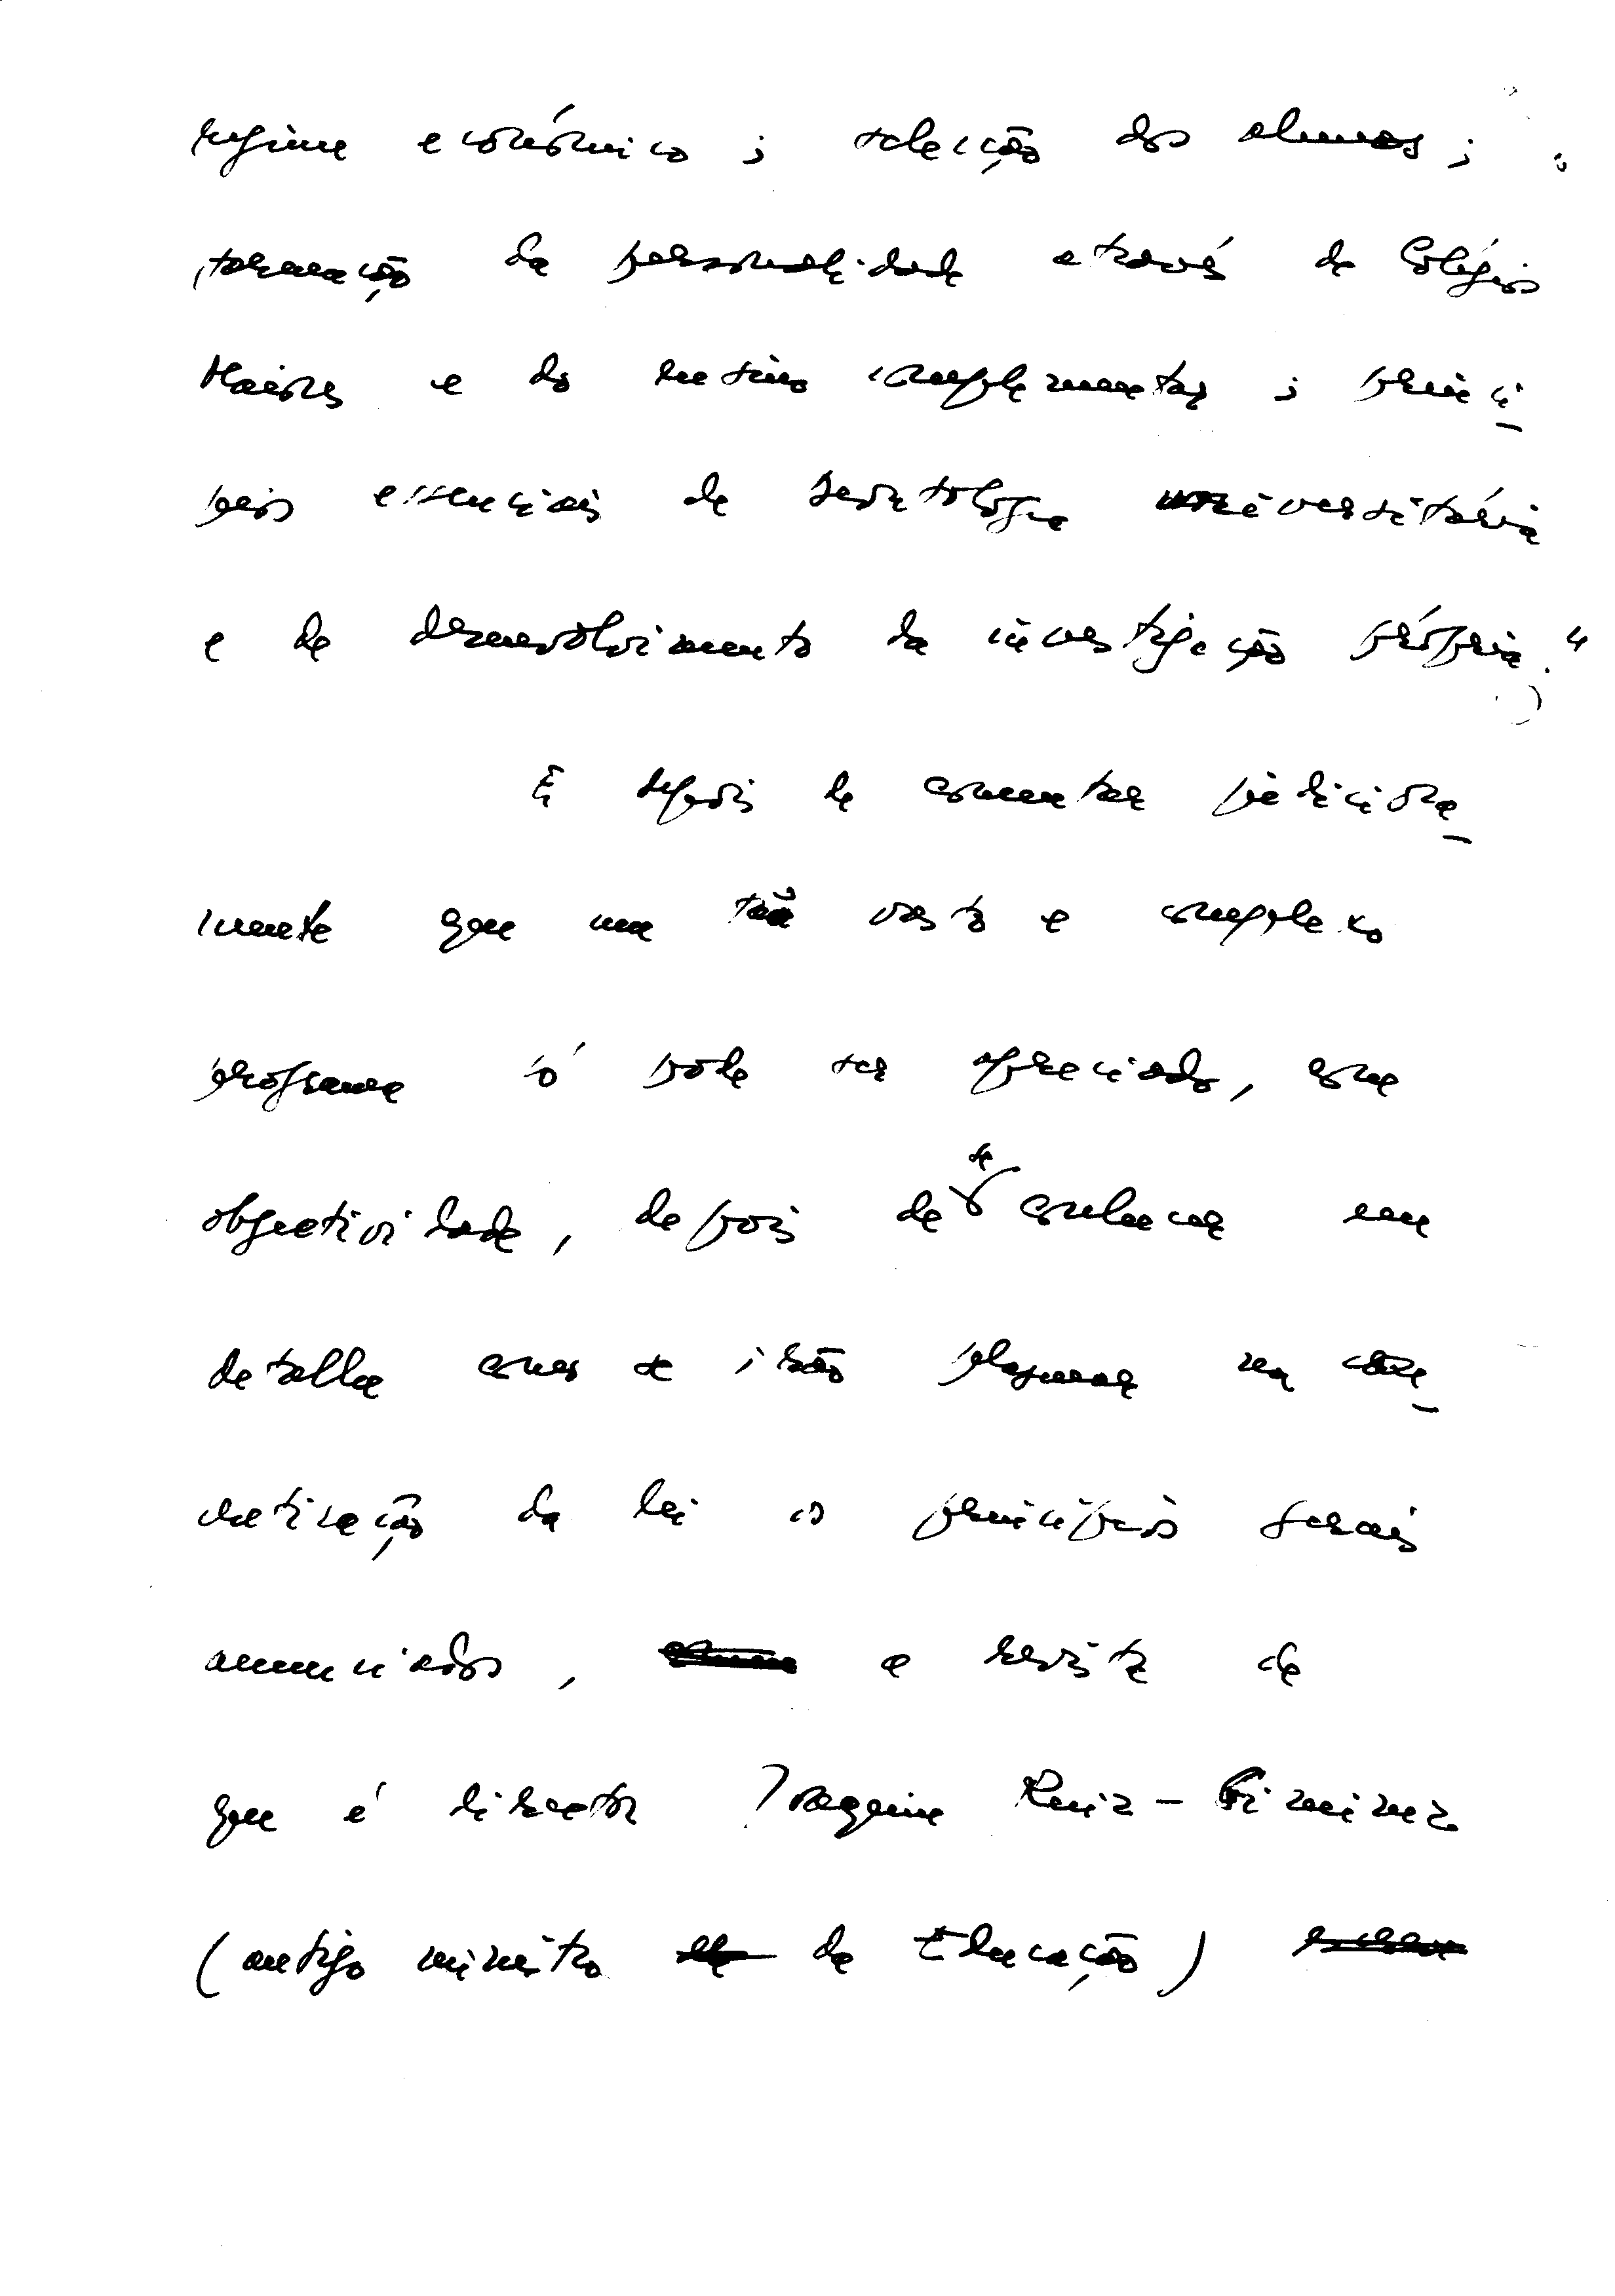 regime económico; selecção dos alunos;
formação da personalidade através de Colégios
Maiores e do ensino complementar; princí-
pios essenciais de deontologia universitária
e de desenvolvimento da investigação própria."
E depois de comentar
mente que um tão vasto e complexo
programa só pode ser apreciado, com
objectividade, depois de se conhecer em
detalhe como se irão plasmar na con-
cretização da lei os princípios gerais
anunciados, a revista de
que é director Joaquim Ruiz-Giménez
(antigo ministro da Educação)